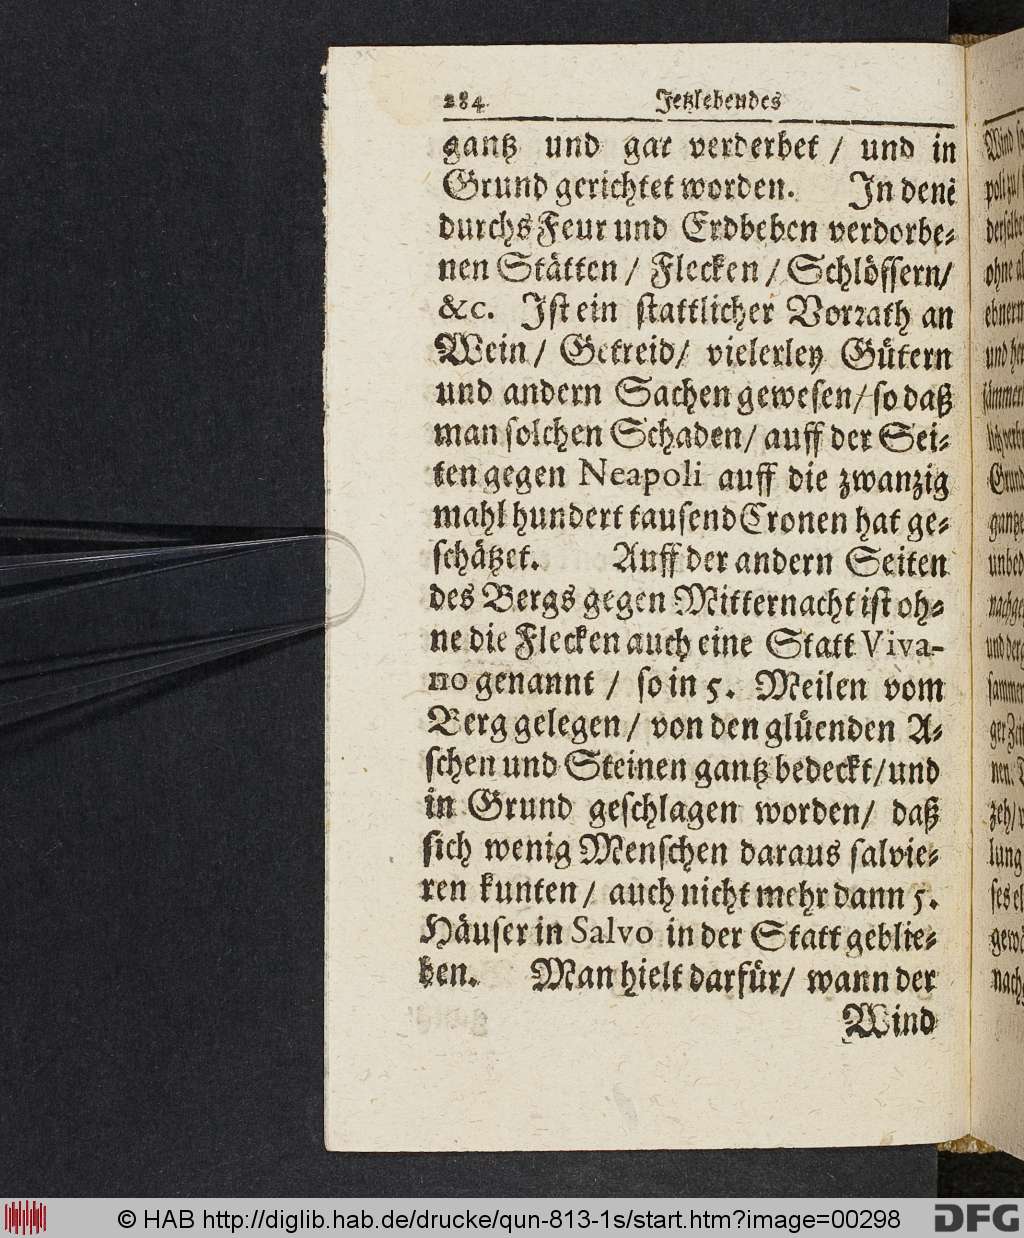 284 Jetzlebendes
gantz und gar verderbet / und in
Grund gerichtet worden. In denẽ
durchs Feur und Erdbeben verdorbe⸗
nen Stätten / Flecken / Schlössern/
&c. Ist ein stattlicher Vorꝛath an
Wein / Getreid/ vielerley Gütern
und andern Sachen gewesen/ so daß
man solchen Schaden/ auff der Sei⸗
ten gegen Neapoli auff die zwanzig
mahl hundert tausend Cronen hat ge⸗
schätzet. Auff der andern Seiten
des Bergs gegen Mitternacht ist oh⸗
ne die Flecken auch eine Statt Viva-
no genannt / so in 5. Meilen vom
Berg gelegen / von den glüenden A⸗
schen und Steinen gantz bedeckt/und
in Grund geschlagen worden/ daß
sich wenig Menschen daraus salvie⸗
ren kunten / auch nicht mehr dann 5.
Häuser in Salvo in der Statt geblie⸗
ben. Man hielt darfür/ wann der
Wind
© HAB http://diglib.hab.de/drucke/qun-813-1s/start.htm?image=00298
DFG